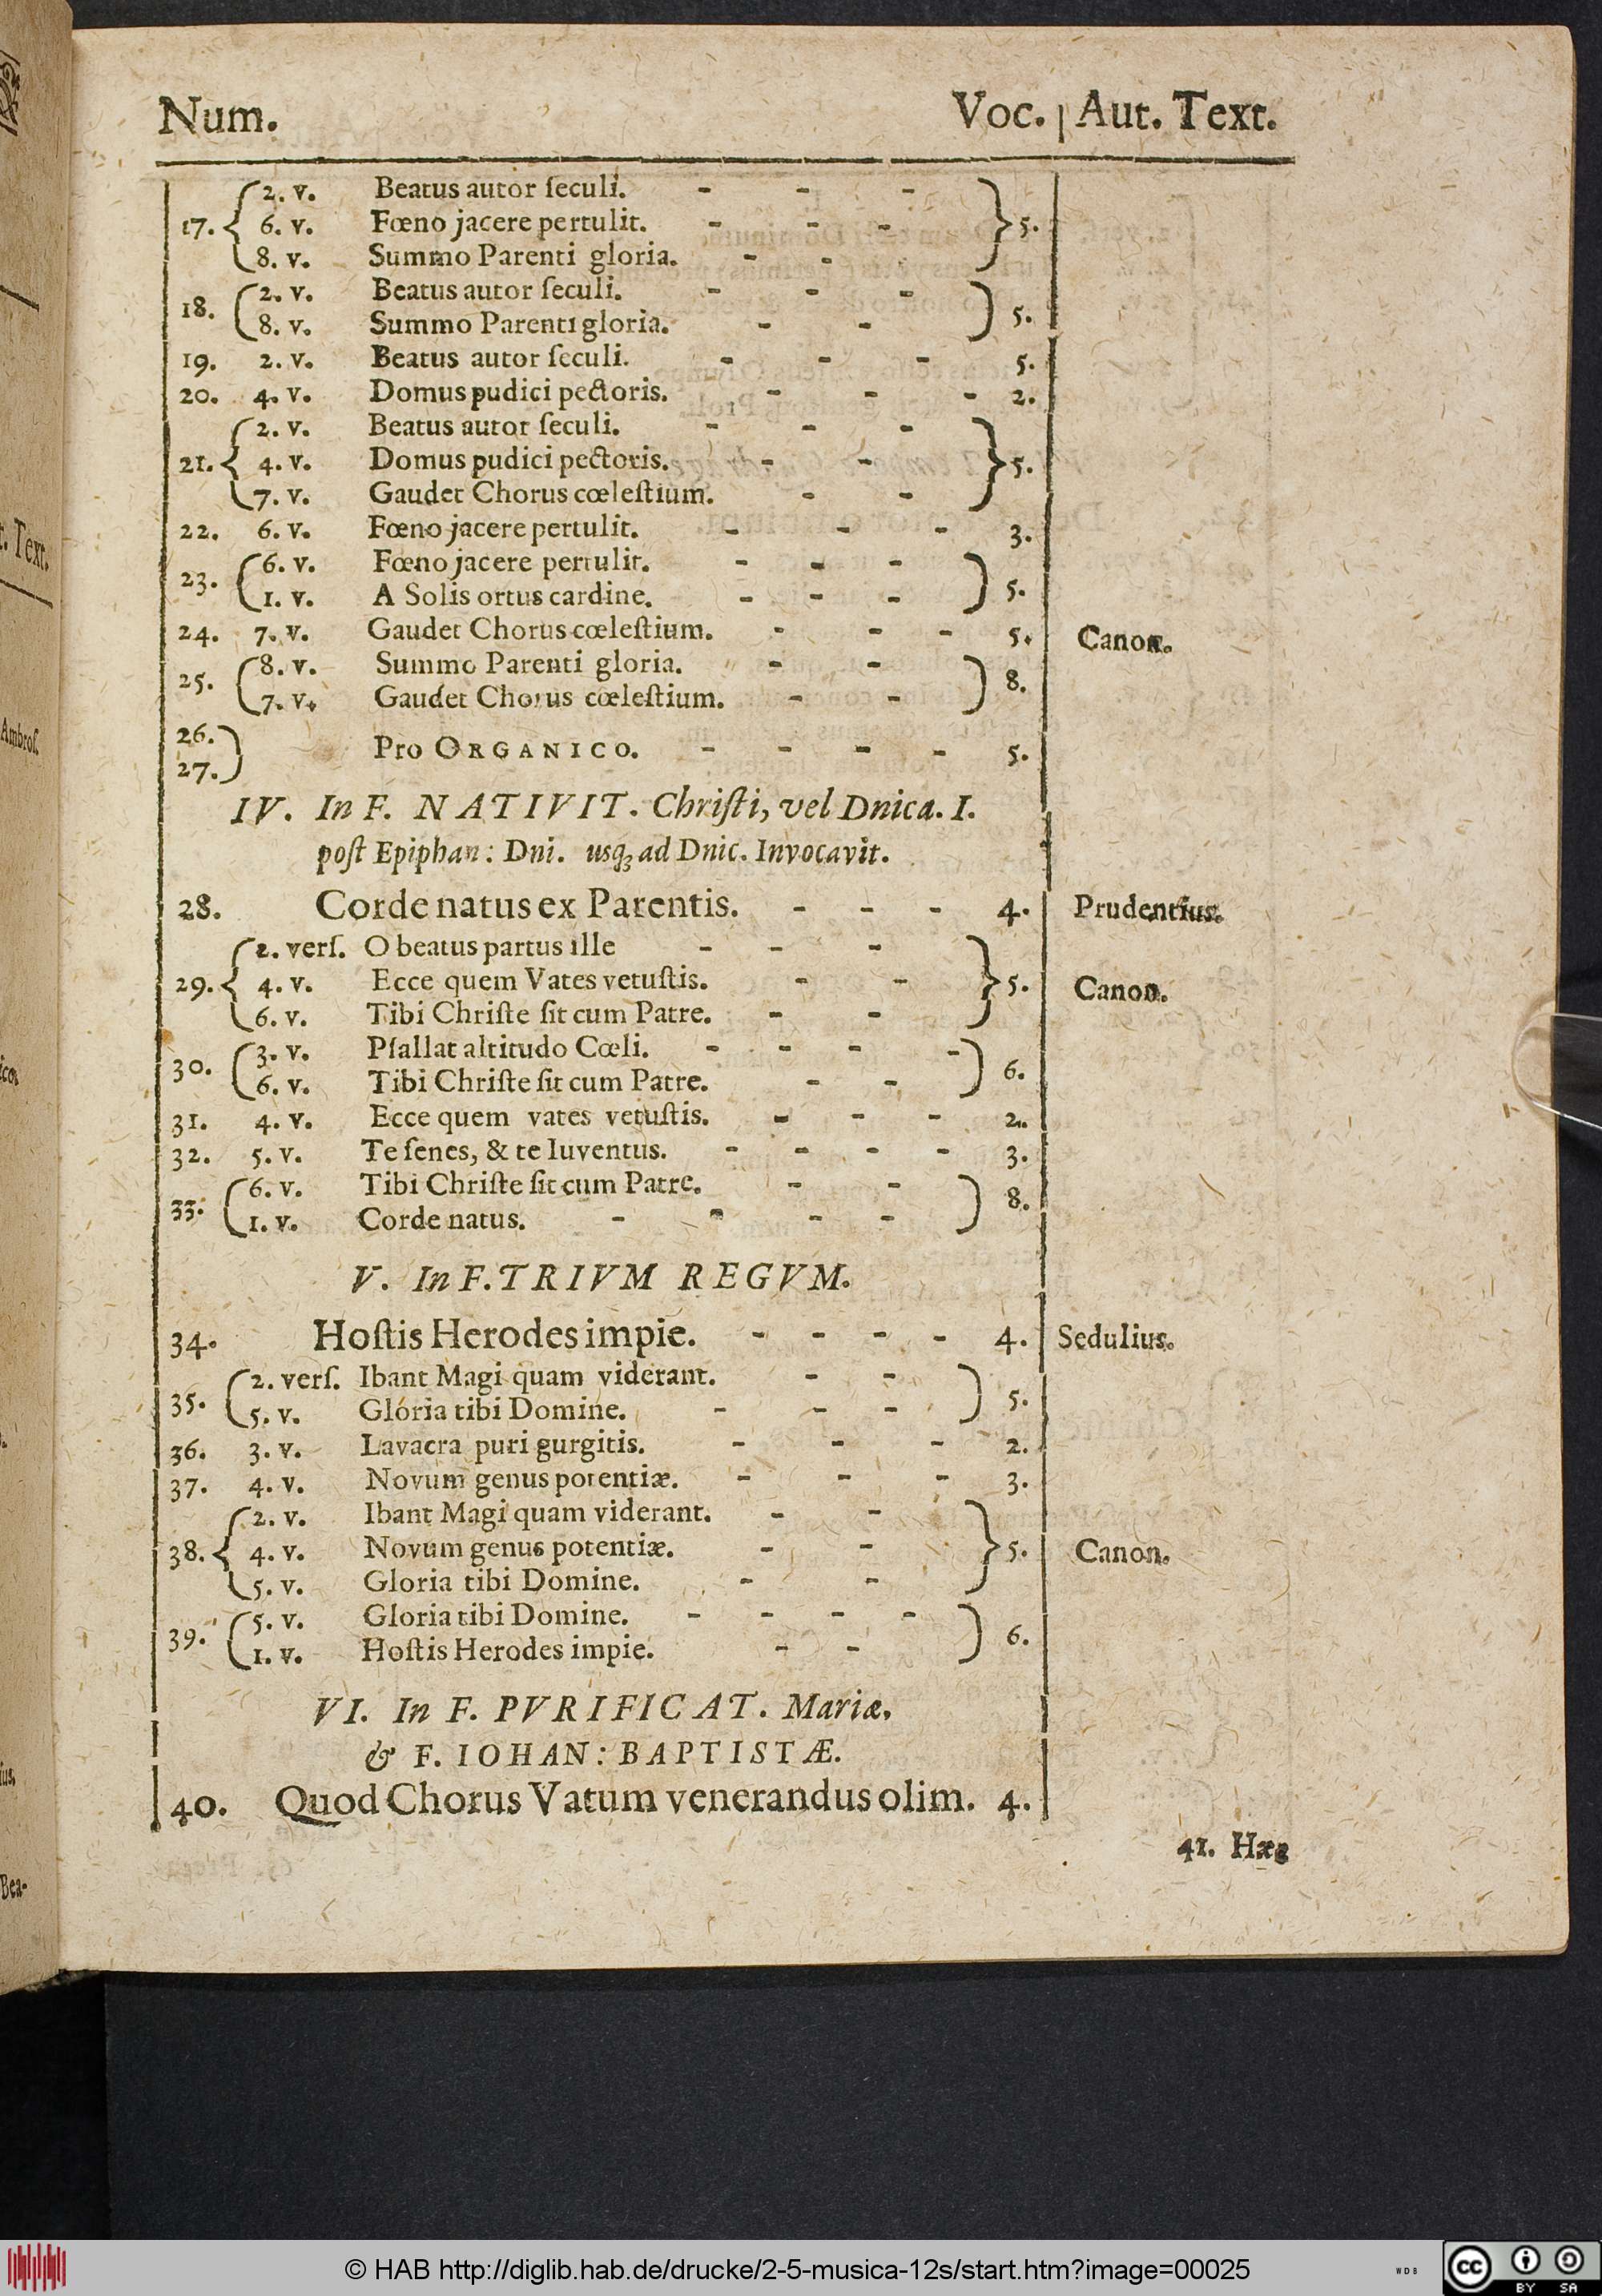 Num. Voc. | Aut. Text.
2. v. Beatus autor ſeculi. - - -
17. { 6. v. Fœno jacere pertulit. - - - } 5.
8. v. Summo Parenti gloria. - - -
18. ( 2. v. Beatus autor ſeculi. - - - ) 5.
8. v. Summo Parenti gloria. - -
19. 2. v. Beatus autor ſeculi. - - - 5.
20. 4. v. Domus pudici pectoris. - - - 2.
2. v. Beatus autor ſeculi. - - -
21. { 4. v. Domus pudici pectoris. - - } 5.
7. v. Gaudet Chorus cœleſtium. - -
22. 6. v. Fœno jacere pertulit. - - - 3.
23. ( 6. v. Fœno jacere pertulit. - - - ) 5.
1. v. A Solis ortus cardine. - - -
24. 7. v. Gaudet Chorus cœleſtium. - - - 5. Canon.
25. ( 8. v. Summo Parenti gloria. - - ) 8.
7. v. Gaudet Chorus cœleſtium. - -
26.
27. ) Pro ORGANICO. - - - - 5.
IV. In F. NATIVIT. Chriſti, vel Dnica. I.
poſt Epiphan: Dni. usq; ad Dnic. Invocavit.
28. Corde natus ex Parentis. - - - 4. Prudentius.
2. verſ. O beatus partus ille - - -
29. { 4. v. Ecce quem Vates vetuſtis. - - } 5. Canon.
6. v. Tibi Chriſte ſit cum Patre. - -
30. ( 3. v. Pſallat altitudo Cœli. - - - - ) 6.
6. v. Tibi Chriſte ſit cum Patre. - -
31. 4. v. Ecce quem vates vetuſtis. - - - 2.
32. 5. v. Te ſenes, & te Iuventus. - - - - 3.
33. ( 6. v. Tibi Chriſte ſit cum Patre. - - ) 8.
1. v. Corde natus. - - - -
V. In F. TRIVM REGVM.
34. Hoſtis Herodes impie. - - - - 4. Sedulius.
35. ( 2. verſ. Ibant Magi quam viderant. - - ) 5.
5. v. Gloria tibi Domine. - - -
36. 3. v. Lavacra puri gurgitis. - - - 2.
37. 4. v. Novum genus potentiæ. - - - 3.
2. v. Ibant Magi quam viderant. - -
38. { 4. v. Novum genus potentiæ. - - } 5. Canon.
5. v. Gloria tibi Domine. - -
39. ( 5. v. Gloria tibi Domine. - - - - ) 6.
1. v. Hoſtis Herodes impie. - -
VI. In F. PVRIFICAT. Mariæ,
& F. IOHAN: BAPTISTÆ.
40. Quod Chorus Vatum venerandus olim. 4.
41. Hæc
t. Text.
Ambroſ.
icoꝛ
ius.
Bea-
© HAB http://diglib.hab.de/drucke/2-5-musica-12s/start.htm?image=00025
WDB
cc BY SA